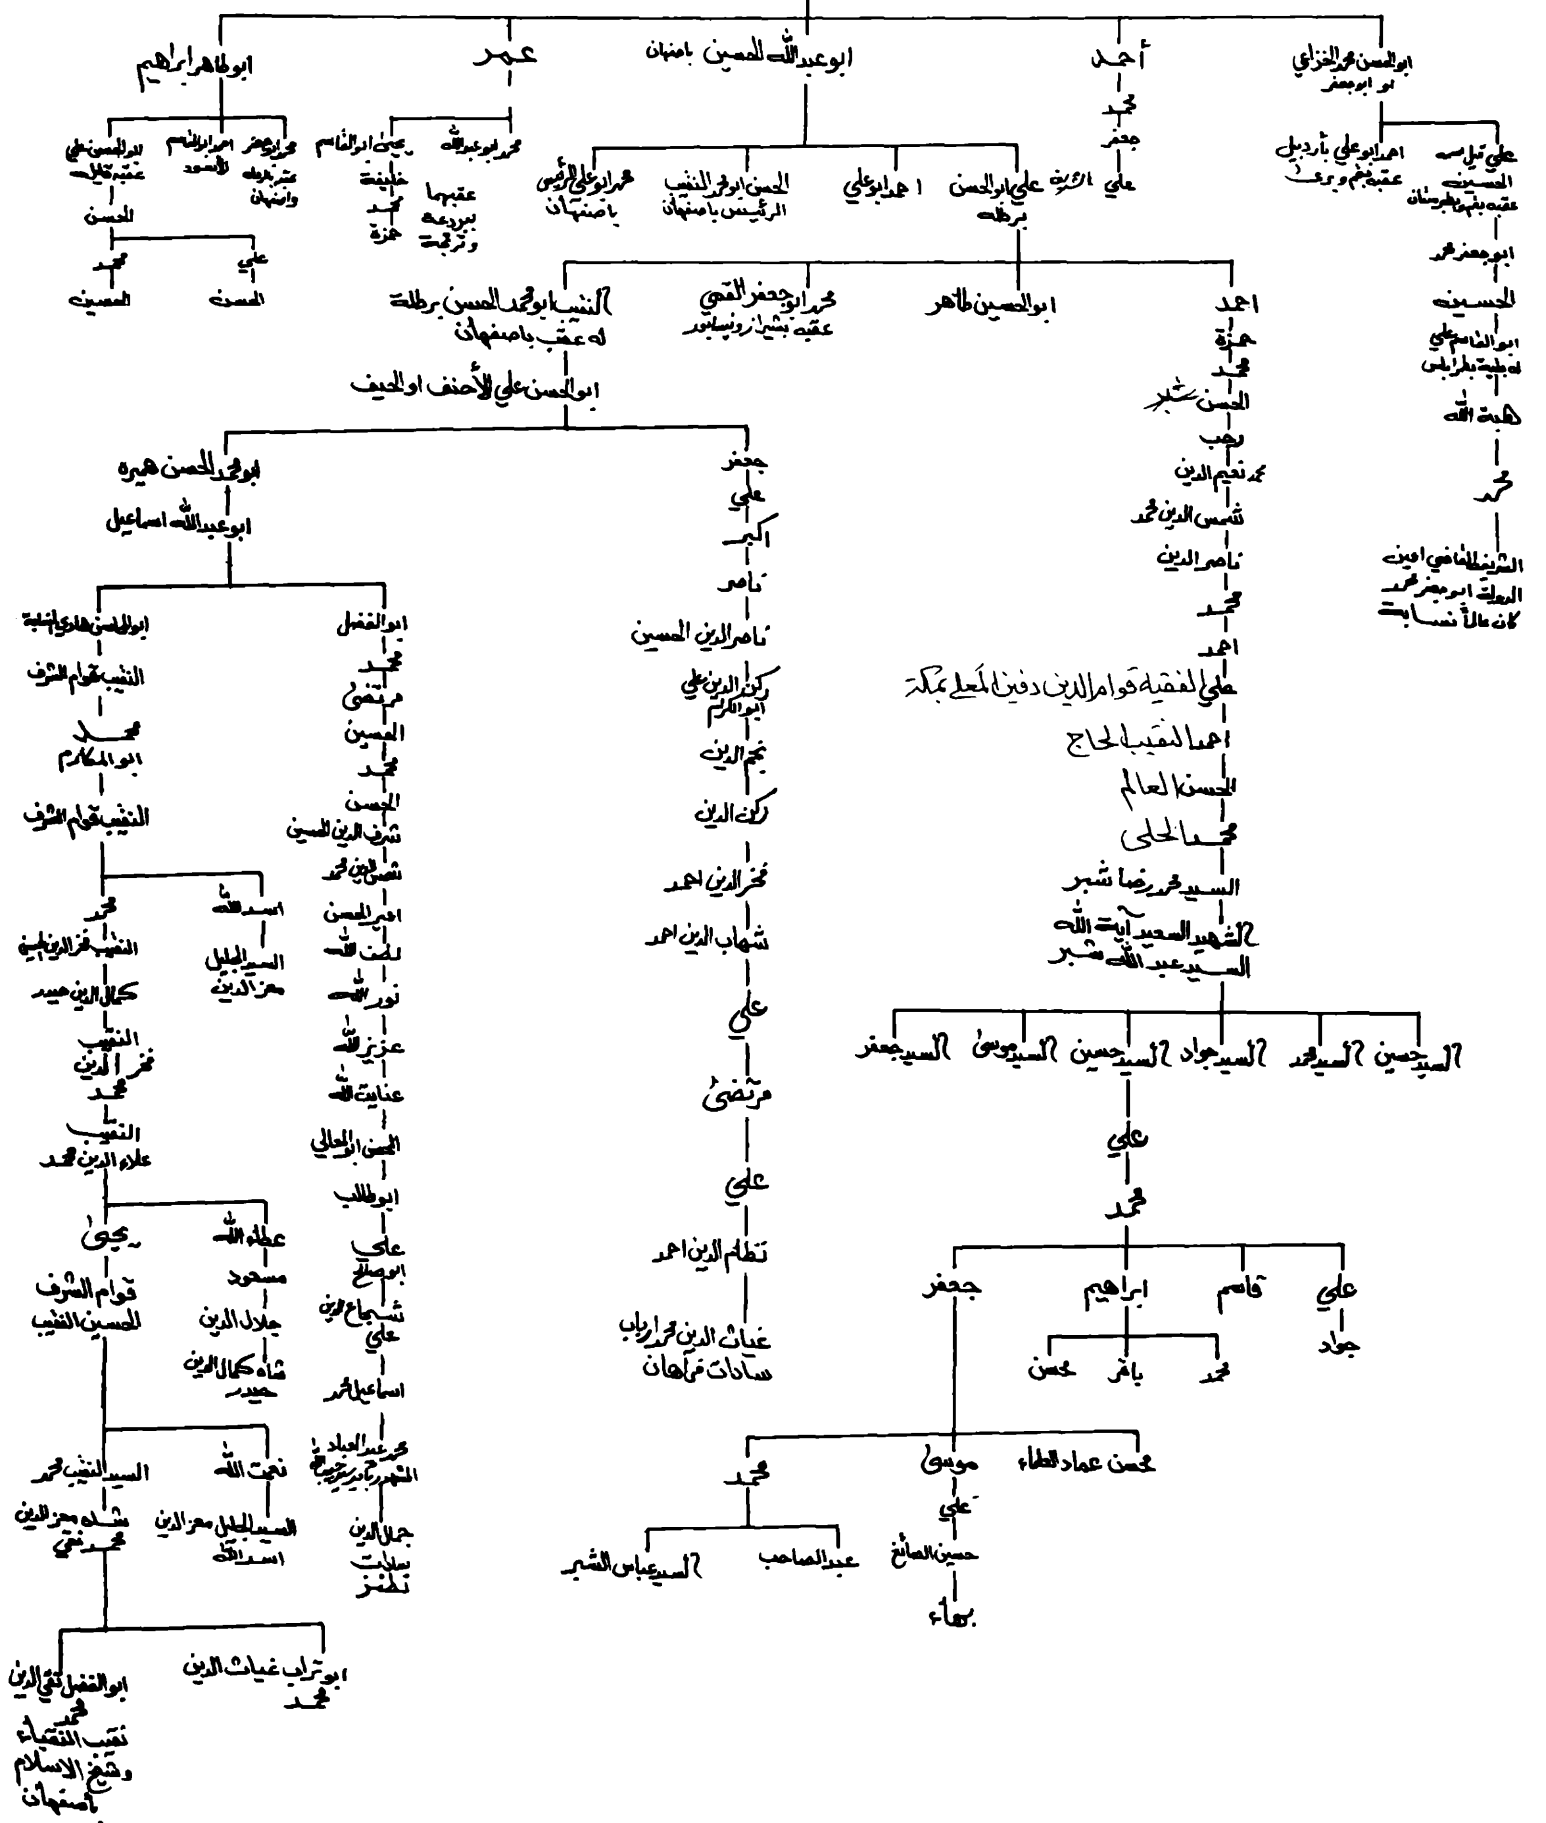 ابو الحسن محمد الخزاعي
او ابو جعفر
أحمد
ابو عبد الله الحسين باصفهان
عمر
ابو طاهر ابراهيم
علي قيل
الحسين
عقبه بقم وطبرستان
ابو جعفر محمد
الحسين
ابو القاسم علي
له بقية بطرابلس
هبة الله
محمد
الشريف القاضي امين
الدولة ابو جعفر محمد
كان عالماً نسابة
احمد ابو علي بأردبيل
محمد
جعفر
علي الشريف
علي ابو الحسن
برطله
احمد ابو علي
الحسن ابو محمد النقيب
الرئيس باصفهان
محمد ابو علي الرئيس
باصفهان
محمد ابو عبد الله
يحيى ابو القاسم
خليفة
محمد
حمزة
عقبهما
ببردعة
محمد ابو جعفر
واصفهان
احمد ابو القاسم
الأسود
ابو الحسن علي
عقبه قليل
الحسن
علي
الحسن
محمد
الحسين
احمد
حمزة
محمد
الحسن شبر
رجب
محمد نعيم الدين
شمس الدين محمد
ناصر الدين
محمد
احمد
علي الفقيه قوام الدين دفين المعلى بمكة
احمد النقيب الحاج
الحسن العالم
محمد الحلي
السيد محمد رضا شبر
الشهيد السعيد آية الله
السيد عبد الله شبر
السيد حسين
السيد محمد
السيد جواد
السيد حسين
السيد موسى
السيد جعفر
علي
محمد
علي
جواد
قاسم
ابراهيم
محمد
باقر
محسن
جعفر
محسن عماد العلماء
موسى
علي
حسين الصائغ
بهاء
محمد
عبد الصاحب
السيد عباس الشبر
ابو الحسين طاهر
محمد ابو جعفر القمي
عقبه بشيراز ونيسابور
النقيب ابو محمد الحسن برطلة
له عقب باصفهان
ابو الحسن علي الأحنف او الحيف
جعفر
علي
اكبر
ناصر
ناصر الدين الحسين
ركن الدين علي
ابو الكرام
نجم الدين
ركن الدين
فخر الدين احمد
شهاب الدين احمد
علي
مرتضى
علي
نظام الدين احمد
غياث الدين محمد ارباب
سادات فراهان
ابو محمد الحسن هميره
ابو عبد الله اسماعيل
ابو الفضل
محمد
مرتضى
الحسين
محمد
الحسن
شرف الدين الحسين
شمس الدين محمد
امير الحسن
لطف الله
نور الله
عزيز الله
عنايت الله
الحسن ابو المعالي
ابو طالب
علي
ابو صالح
شجاع الدين
علي
اسماعيل محمد
محمد عبد العباد
جمال الدين
سادات
نطنز
ابو المحاسن هادي
النقيب قوام الشرف
محمد
ابو المكارم
النقيب قوام الشرف
اسد الله
السيد الجليل
معز الدين
محمد
النقيب فخر الدين
كمال الدين حيدر
النقيب
فخر الدين
محمد
النقيب
علاء الدين محمد
عطاء الله
مسعود
جلال الدين
شاه كمال الدين
حيدر
يحيى
قوام الشرف
الحسين النقيب
نعمت الله
السيد الجليل معز الدين
اسد الله
السيد النقيب محمد
شاه معز الدين
محمد تقي
ابو تراب غياث الدين
محمد
ابو الفضل تقي الدين
محمد
نقيب النقباء
وشيخ الاسلام
بأصفهان